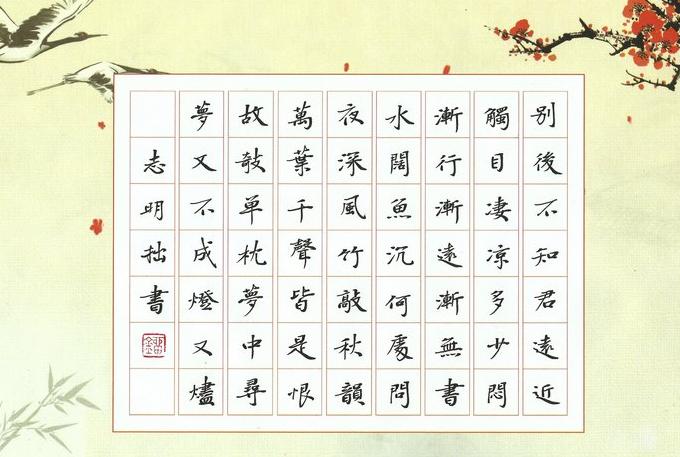 別後不知君遠近
觸目凄凉多少悶
漸行漸遠漸無書
水闊魚沉何處問
夜深風竹敲秋韻
萬葉千聲皆是恨
故攲单枕夢中尋
夢又不成燈又燼
志明拙書